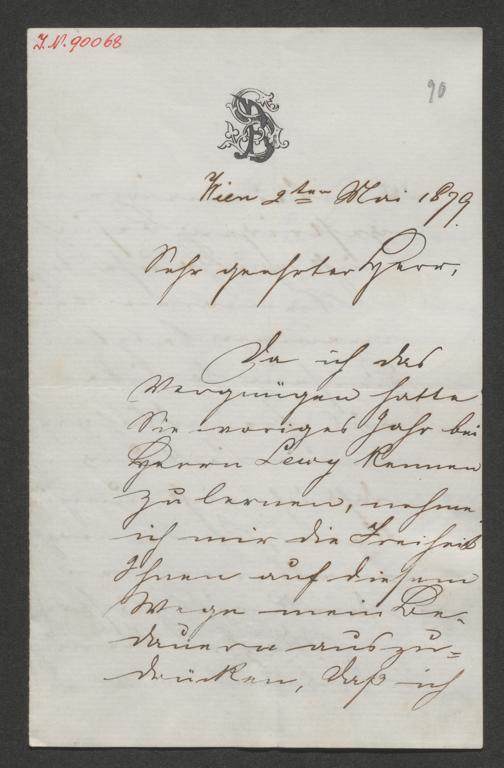 J.N. 90068
90
SB
Wien 2ten Mai 1879.
Sehr geehrter Herr,
Da ich das
Vergnügen hatte
Sie voriges Jahr bei
Herrn Lewy kennen
zu lernen, nehme
ich mir die Freiheit
Ihnen auf diesem
Wege mein Be-
dauern auszu-
drücken, daß ich